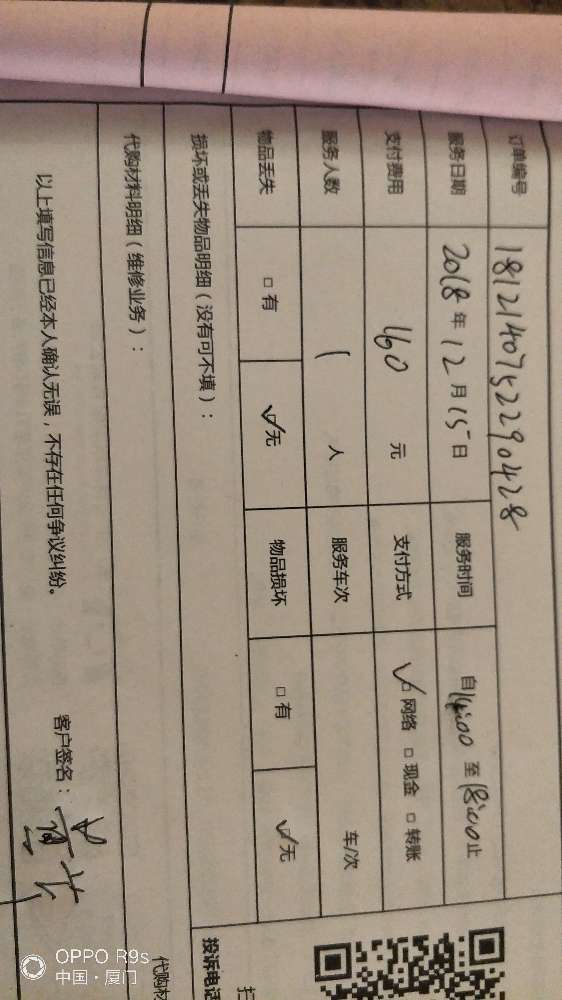 订单编号 18121407522290428
服务日期 2018年12月15日 服务时间 自14:00至18:00止
支付费用 160元 支付方式 ☑网络 □现金 □转账
服务人数 1人 服务车次 车/次
物品丢失 □有 ☑无 物品损坏 □有 ☑无
损坏或丢失物品明细（没有可不填）：
代购材料明细（维修业务）：
以上填写信息已经本人确认无误，不存在任何争议纠纷。 客户签名：
投诉电话
代购材
OPPO R9s
中国·厦门